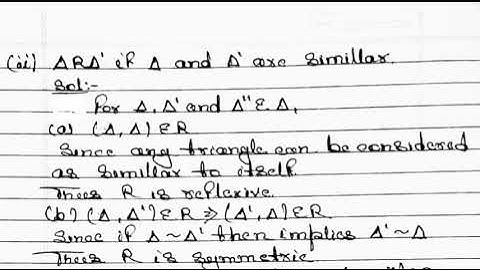 (ii) ΔRΔ' if Δ and Δ' are similar.
Sol:-
For Δ, Δ' and Δ" ε Δ,
(a) (Δ, Δ) ε R
Since any triangle can be considered
as similar to itself.
Thees R is reflexive.
(b) (Δ, Δ') ε R ⇒ (Δ', Δ) ε R
Since if Δ ~ Δ' then implies Δ' ~ Δ
Thees R is symmetric